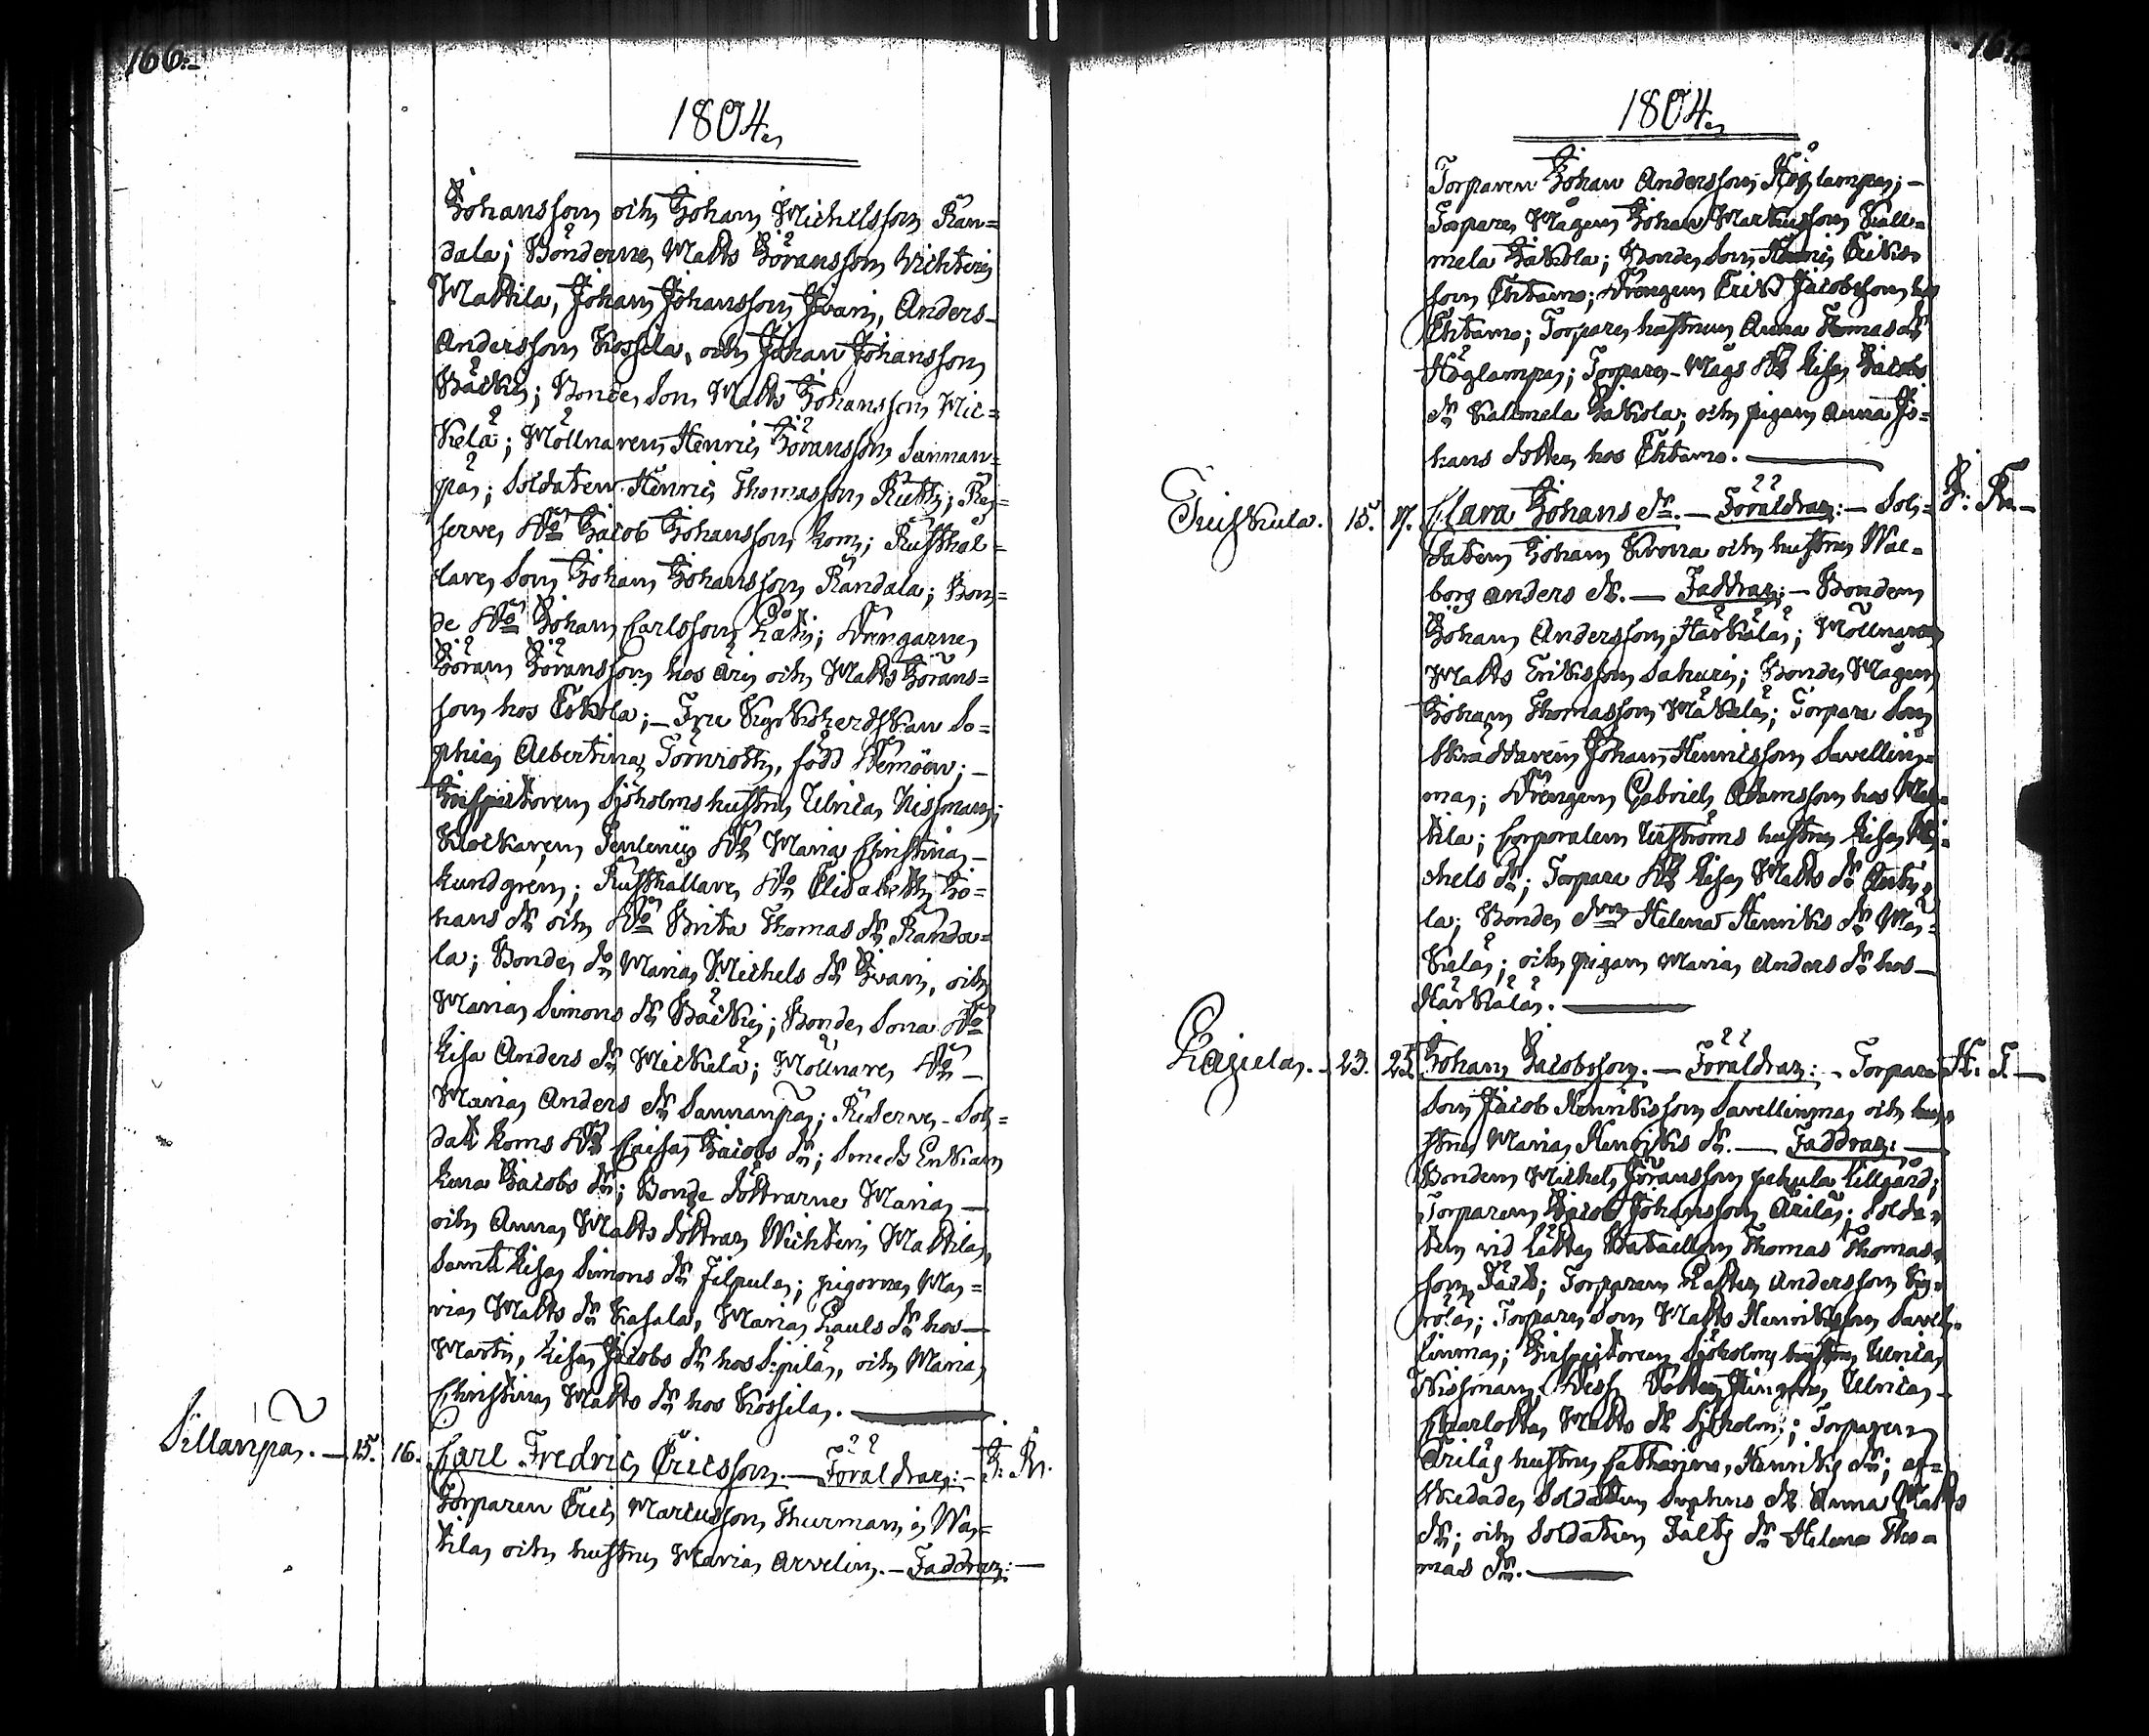 166.
1804.
Johansson, och Johan Michelsson Ran=
dala; Bönderne, Matts Göransson Wichteri
Mattila, Johan Johansson Ivari, Anders
Andersson Kossila, och Johan Johansson
Bäcki; Bonde Son Matts Johansson Mic=
kelä; Möllnaren Henric Göransson Sannan=
pä; Soldaten Henric Thomasson Rutt; Re=
serve Do Jacob Johansson Kom; Rusthål=
lare Son Johan Johansson Randala; Bon=
de Do Johan Carlsson; Drengarne
Göran Göransson hos Äri och Matts Görans=
son hos Eskola; – Fru Kyrkoherdskan So=
phia Albertina Törnroth, född;–
Inspectoren Sjöholms hustru Ulrica Nissman;
Klockaren Do Maria Christina
Lundgren; Rusthållare Do Elisabeth Jo=
hans dr och Do Brita Thomas dr Randa=
la; Bonde Do Maria Michels dr Ivari, och
Maria Simons dr Bäcki; Bonde Sona Do
Lisa Anders dr Mickelä; Möllnare Do –
Maria Anders dr Sannanpä; Reserve Sol=
dat Koms Do Caisa Jacobs dr; Smeds Enkan
Lena Jacobs dr; Bonde döttrarne Maria –
och Anna Matts döttrar Wichteri Mattila,
Samt Lisa Simons dr Jilpula; pigorna Ma=
ria Matts dr Kasala, Maria Pauls dr hos –
Martti, Lisa Jacobs dr hos Sipilä, och Maria
Christina Matts dr hos Kossila. –
Sillanpä. – 15. 16. Carl Fredric Ericsson. – Föräldrar: – J. Rn.
Torparen Eric Marcusson Thurman i Wa=
tila och hustru Maria Arvelin. – Faddrar: –
1804.
Torparen Johan Andersson Höglampa; –
Torpare Mågen Johan Markusson Kall=
mela Jakola; Bonde Son Henric Eriks=
son Ehtamo; Drengen Erik Jacobsson hos
Ehtamo; Torpare hustrun Anna Thomas dr
Höglampa; Torpare Mågs Do Lisa Jacobs
dr Kallmela Jakola; och pigan Anna Jo=
hans dotter hos Ehtamo. –
15. 17. Clara Johans dr. – Föräldrar: – Sol= J. Rn. –
daten Johan Krona och hustru Wal=
borg Anders dr. – Faddrar: – Bonden
Johan Andersson Härkälä; Möllnaren
Matts Eriksson Sahuri; Bonde Mågen
Johan Thomasson Mäkelä; Torpare Son
Skräddaren Johan Henricsson Savellin=
ma; Drengen Gabriel Adamsson hos Mat=
tila; Corporalen hustru Lisa Mi=
chels dr; Torpare Do Lisa Matts dr
la; Bonde Helena Henriks dr Mä=
kelä; och pigan Maria Anders dr hos –
Härkälä. –
23. 25. Johan Jacobsson. – Föräldrar: – Torpare H. T. –
Son Jacob Henriksson Savellinma och hu=
stru Maria Henriks dr. – Faddrar: –
Bonden Michel Göransson Lillgård;
Torparen Jacob Johansson Ärilä; Solda=
ten vid Lätta Bataillon Thomas Thomas=
son Fält; Torparen Andersson
rölä; Torpare Son Matts Henriksson Savel=
linma; Inspectoren Sjöholms hustru Ulrica
Nissman, Dess Dotter Ulrica
Charlotta Matts dr Sjöholm; Torparen
Ärilä hustru Catharina Henriks dr; af=
skedade Soldaten Do Anna Matts
dr; och Soldaten Fälts Do Helena Tho=
mas dr. –